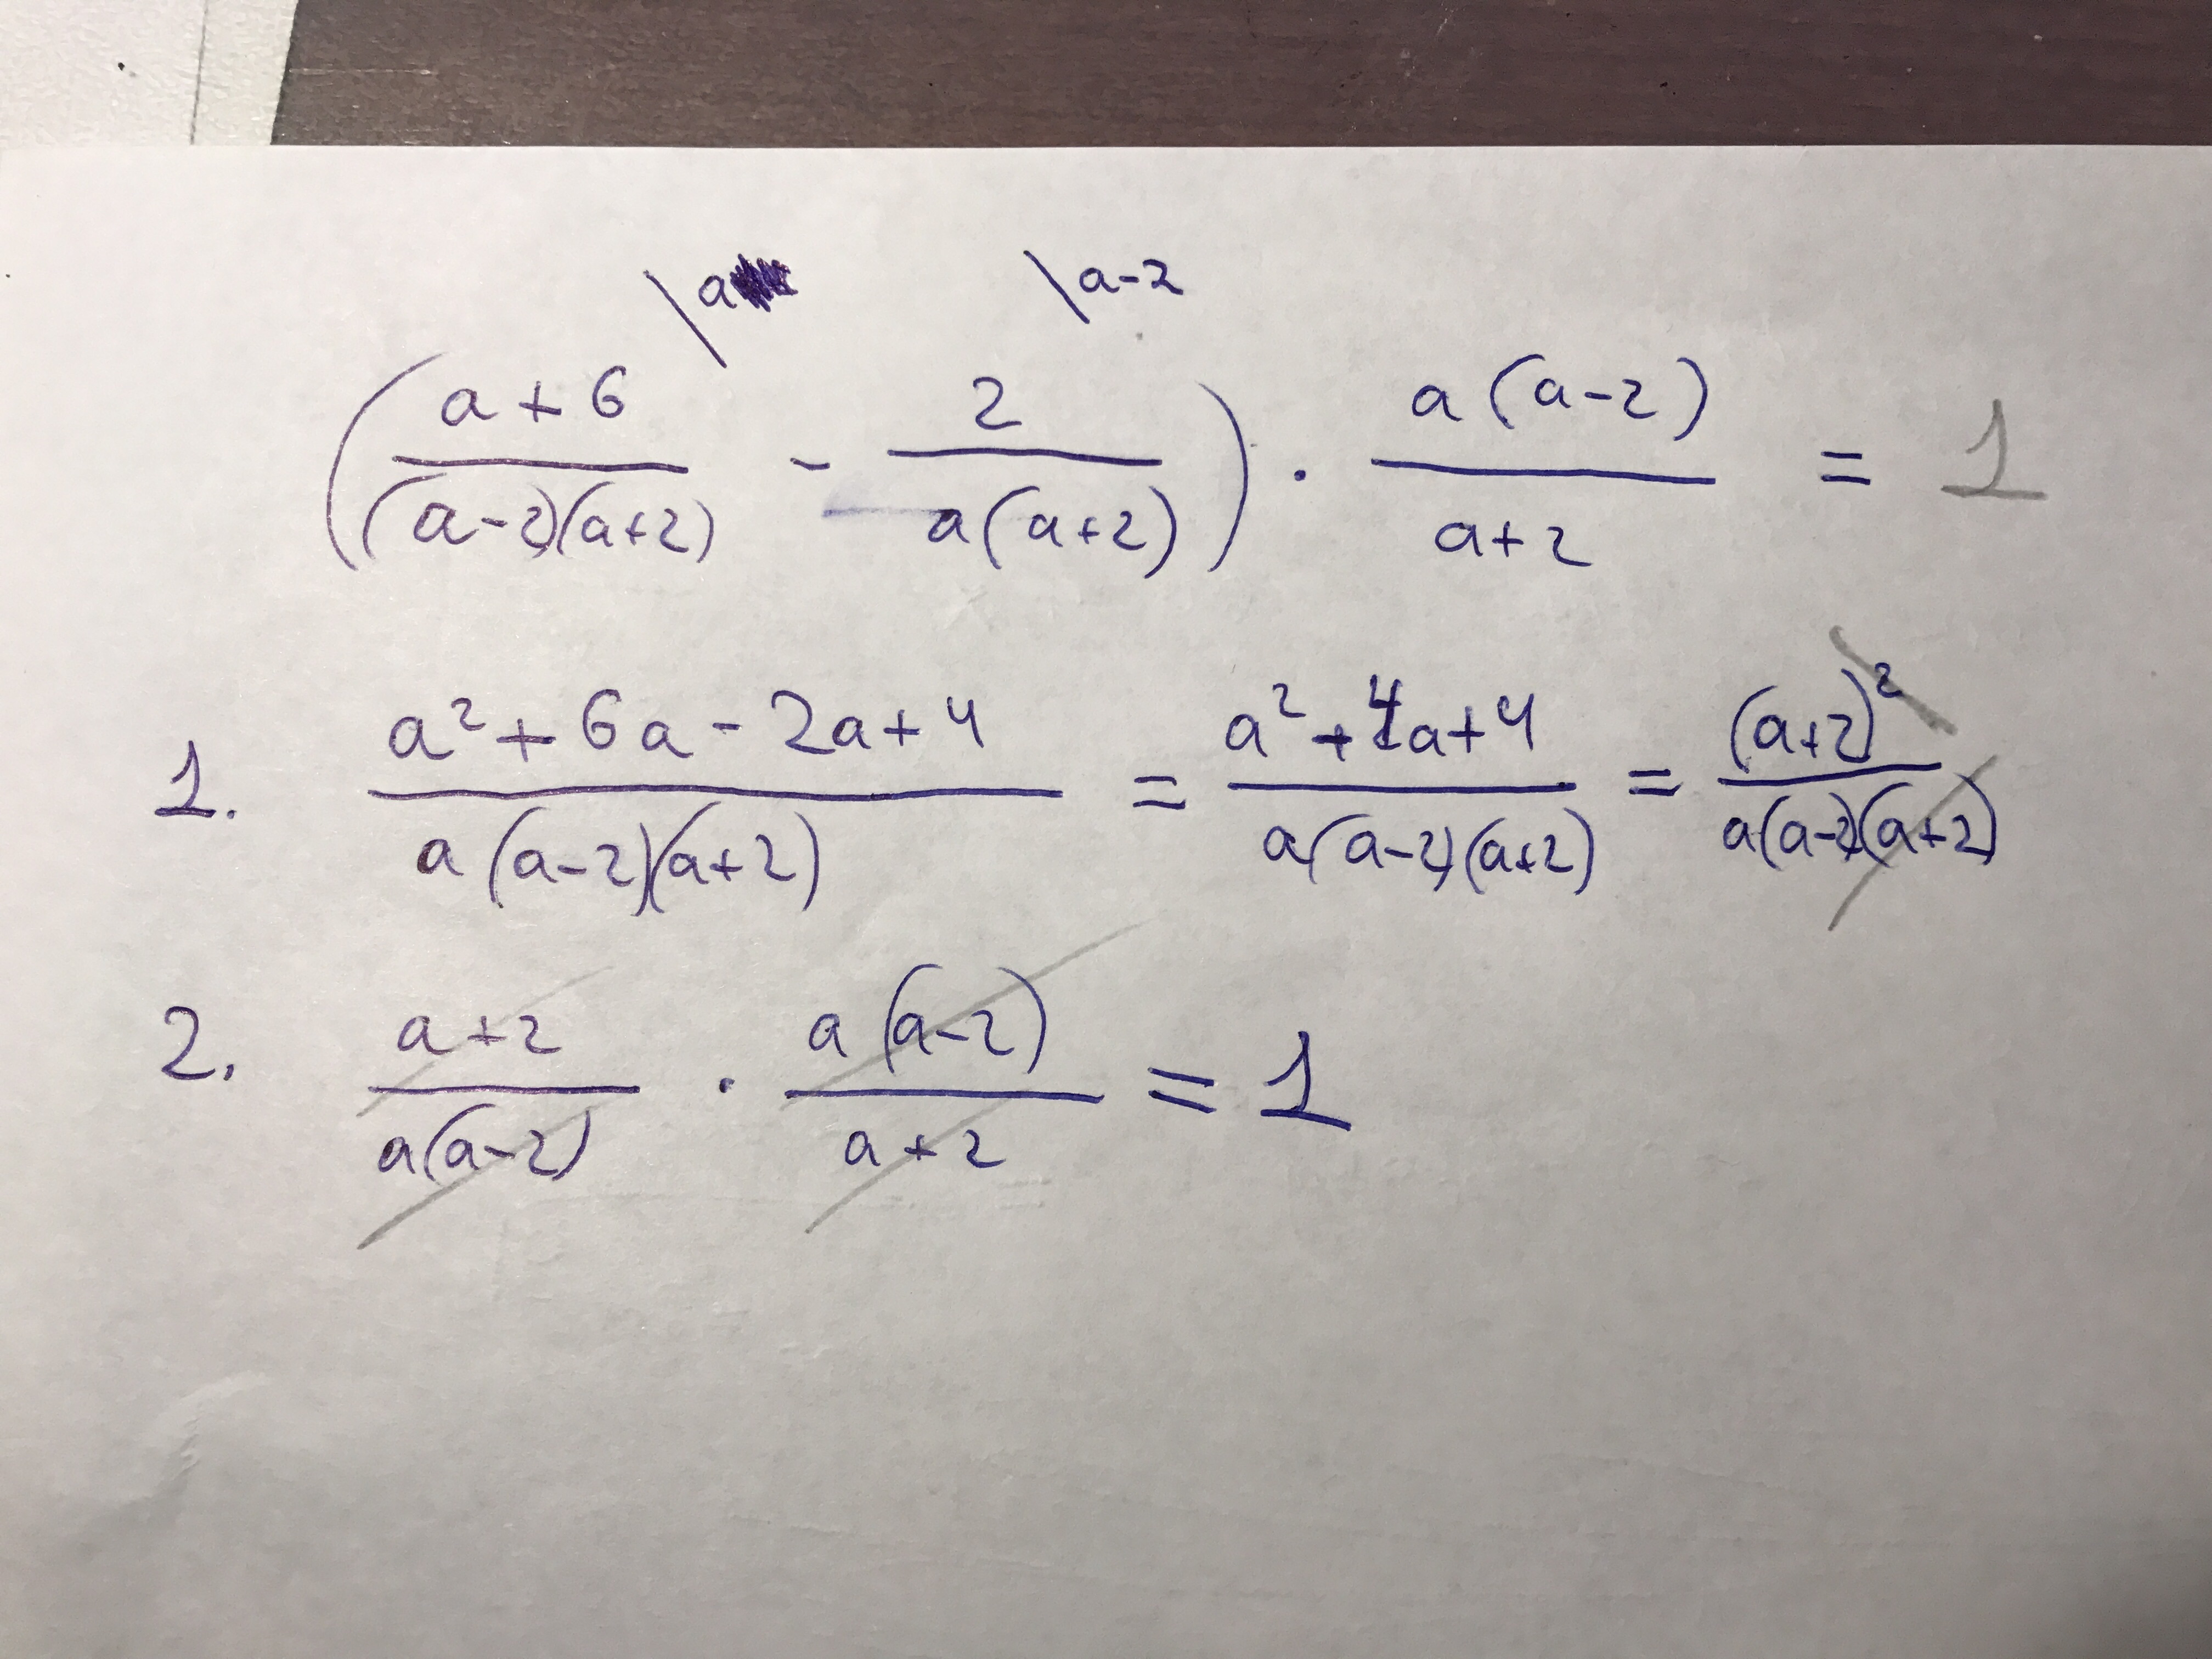 \a \a-2
( (a+6)/((a-2)(a+2)) - 2/(a(a+2)) ) · (a(a-2))/(a+2) = 1
1. (a²+6a-2a+4)/(a(a-2)(a+2)) = (a²+4a+4)/(a(a-2)(a+2)) = (a+2)²/(a(a-2)(a+2))
2. (a+2)/(a(a-2)) · (a(a-2))/(a+2) = 1